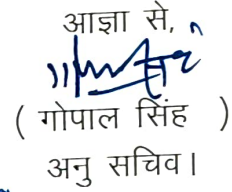 आज्ञा से,
( गोपाल सिंह )
अनु सचिव।